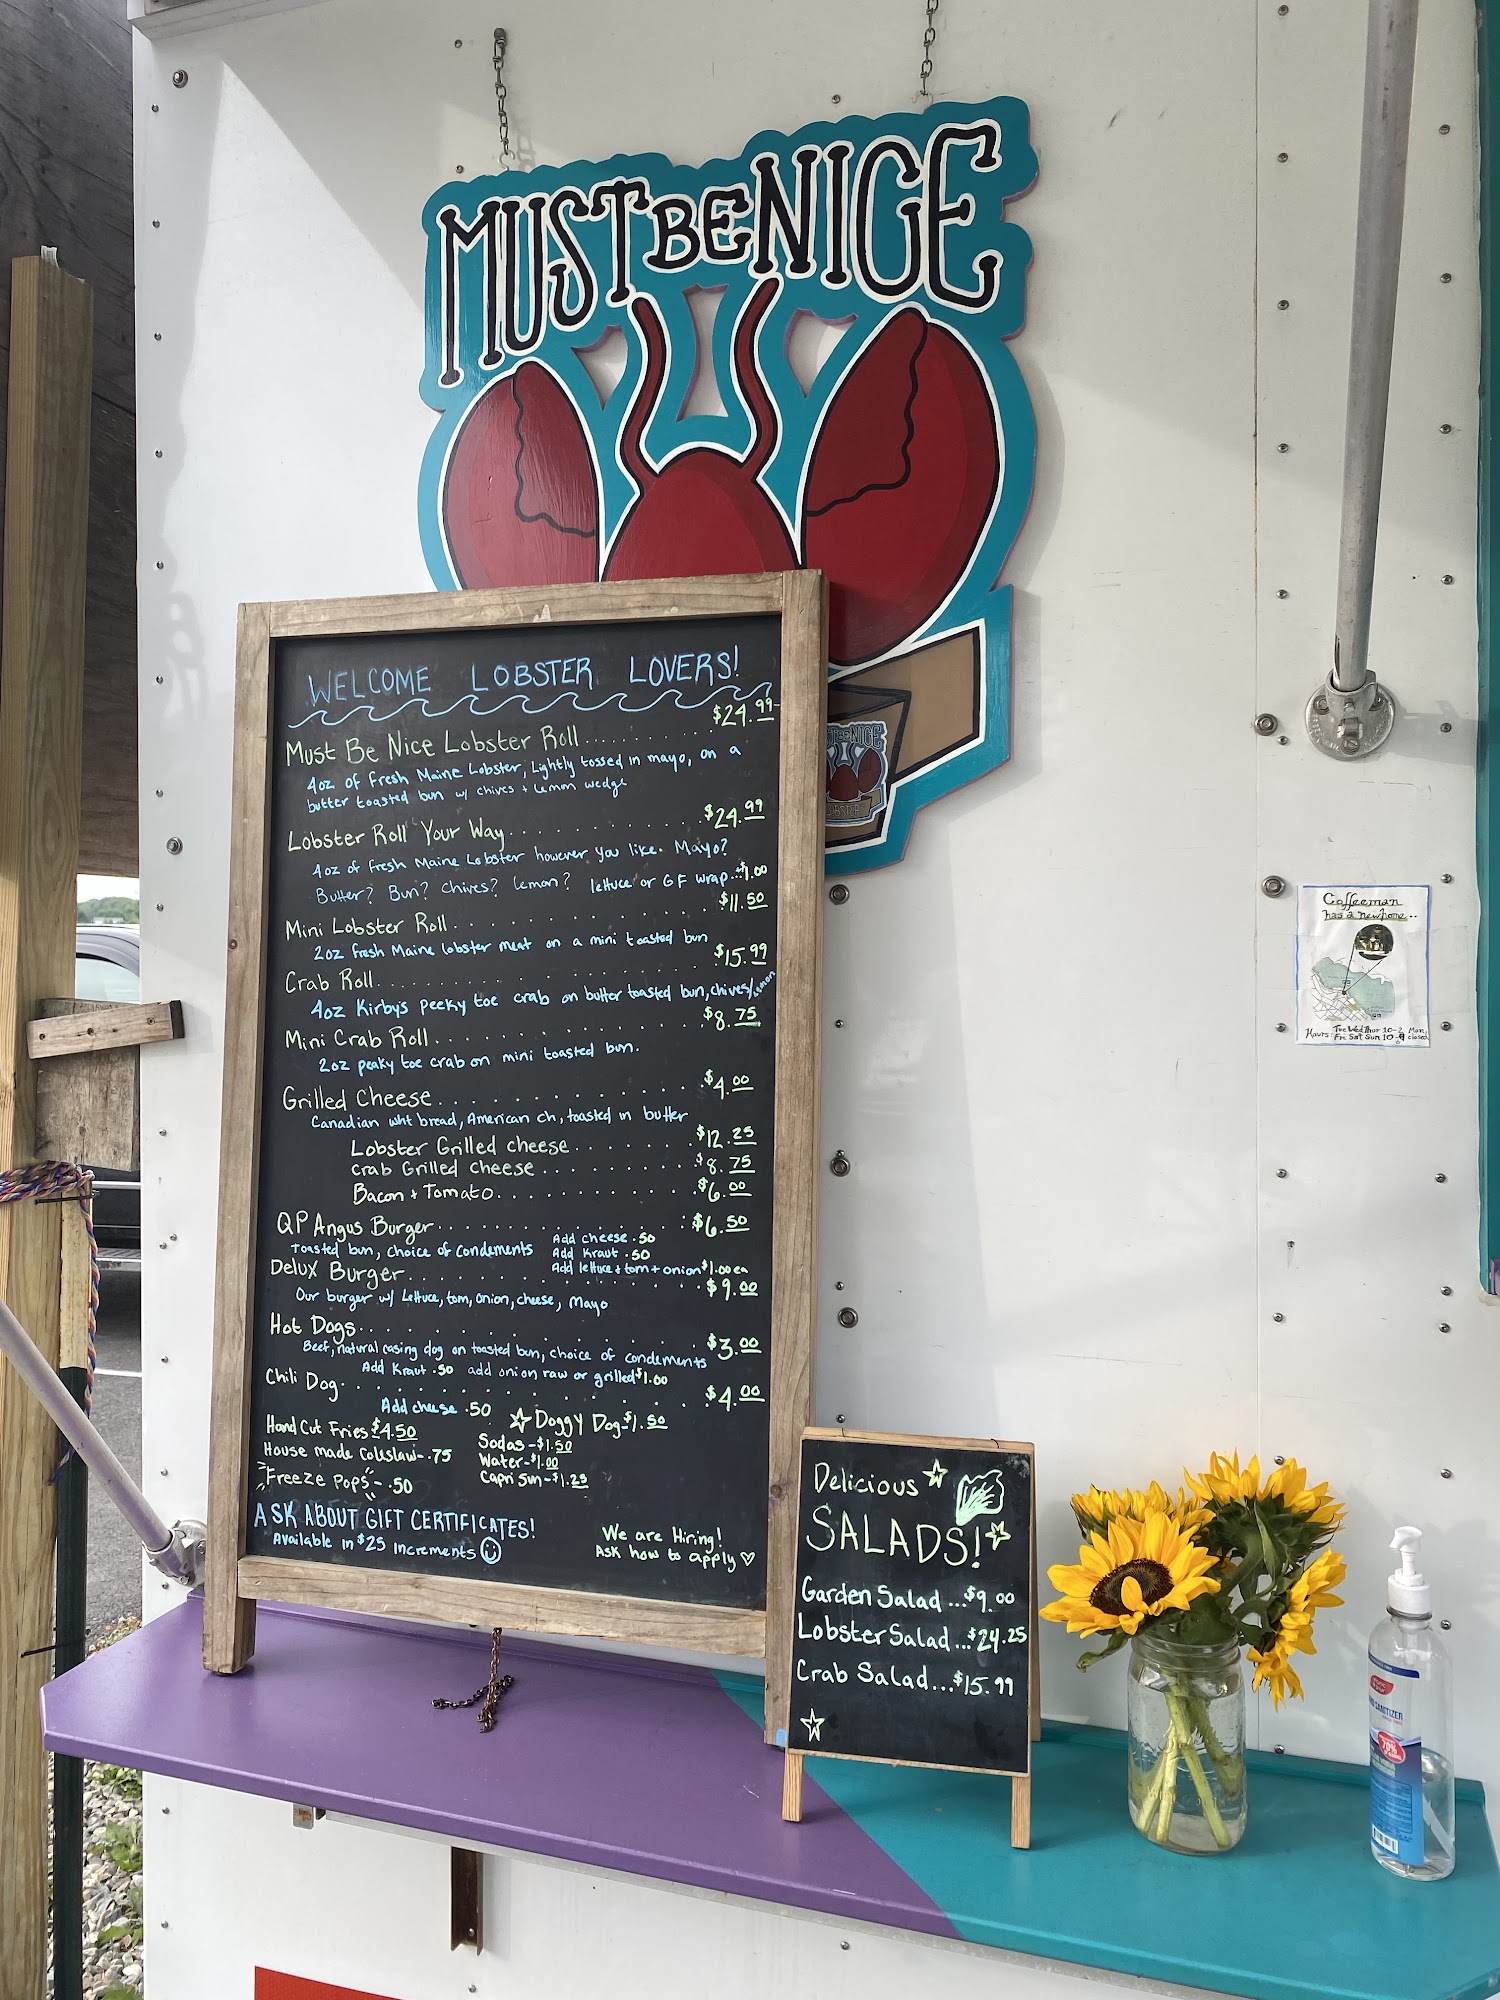 MUST BE NICE
WELCOME LOBSTER LOVERS!
Must Be Nice Lobster Roll.......... $24.99
4oz of Fresh Maine Lobster, Lightly tossed in mayo, on a
butter toasted bun w/ chives + Lemon wedge
Lobster Roll "Your Way.......... $24.99
4oz of Fresh Maine Lobster however you like. Mayo?
Butter? Bun? Chives? Lemon? lettuce or GF wrap..+$1.00
Mini Lobster Roll.......... $11.50
2oz fresh Maine lobster meat on a mini toasted bun
Crab Roll.......... $15.99
4oz Kirby's Peeky toe crab on butter toasted bun, chives/Lemon
Mini Crab Roll.......... $8.75
2oz peaky toe crab on mini toasted bun.
Grilled Cheese.......... $4.00
Canadian wht bread, American ch, toasted in butter
Lobster Grilled cheese.......... $12.25
Crab Grilled Cheese.......... $8.75
Bacon + Tomato.......... $6.00
QP Angus Burger.......... $6.50
Toasted bun, choice of Condements
Add cheese .50
Add Kraut .50
Add lettuce + tom + onion $1.00 ea
Delux Burger.......... $9.00
Our burger w/ Lettuce, tom, onion, cheese, Mayo
Hot Dogs.......... $3.00
Beef, natural casing dog on toasted bun, choice of condements
Add Kraut .50 add onion raw or grilled $1.00
Chili Dog.......... $4.00
Add cheese .50
Hand Cut Fries $4.50
House made Coleslaw-.75
"Freeze Pops"- .50
Doggy Dog-$1.50
Sodas-$1.50
Water-$1.00
Capri Sun-$1.25
ASK ABOUT GIFT CERTIFICATES!
Available in $25 increments
We are Hiring!
Ask how to apply
Delicious
SALADS!
Garden Salad ...$9.00
Lobster Salad ...$24.25
Crab Salad...$15.99
Coffeeman
has a new home..
Hours: Tue Wed Thur 10-2 Mon,
Fri Sat Sun 10- closed
SANITIZER
70%
BE NICE